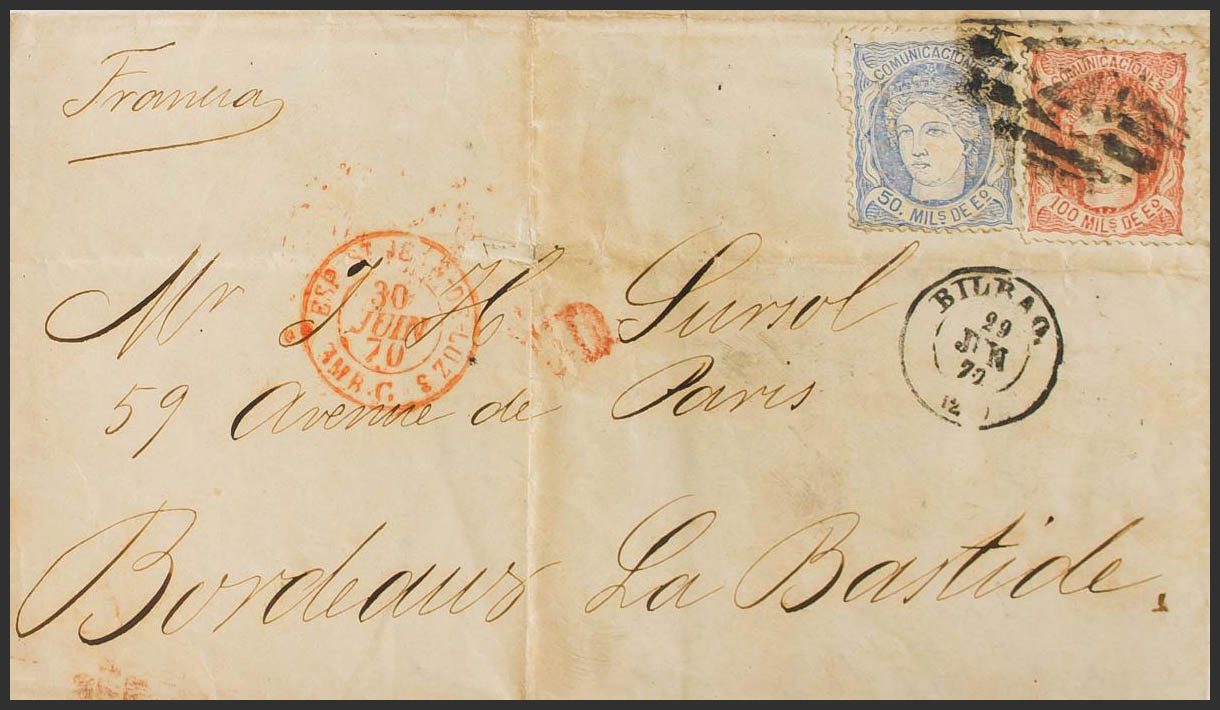 Francia
COMUNICACIONES
50. MILS DE EO
COMUNICACIONES
100 MILS DE EO
ESP. ST JE LUZ 3
30
JUIN
70
AMB.C.
PD
BILBAO
29
JUN
70
Mr J H Sursol
59 Avenue de Paris
Bordeaux La Bastide.